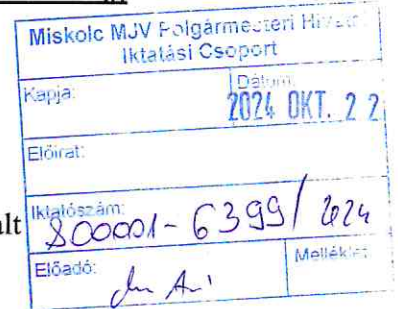 Miskolc MJV Polgármesteri Hivatal
Iktatási Csoport
Kapja:
Dátum:
2024 OKT. 22
Előirat:
Iktatószám:
800001-6399/2024
alt
Előadó:
Melléklet: